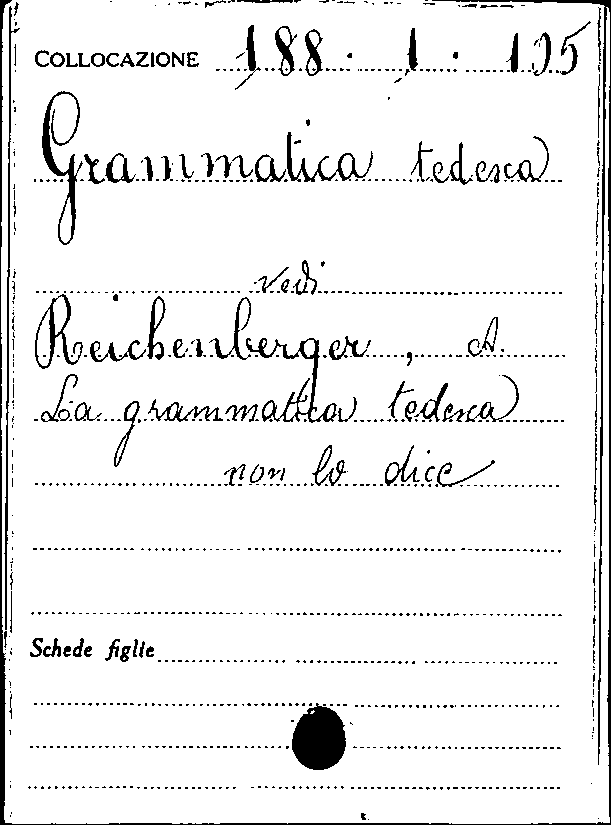 COLLOCAZIONE 188 . 1 . 195
Grammatica tedesca
vedi
Reichenberger, A.
La grammatica tedesca
non lo dice
Schede figlie